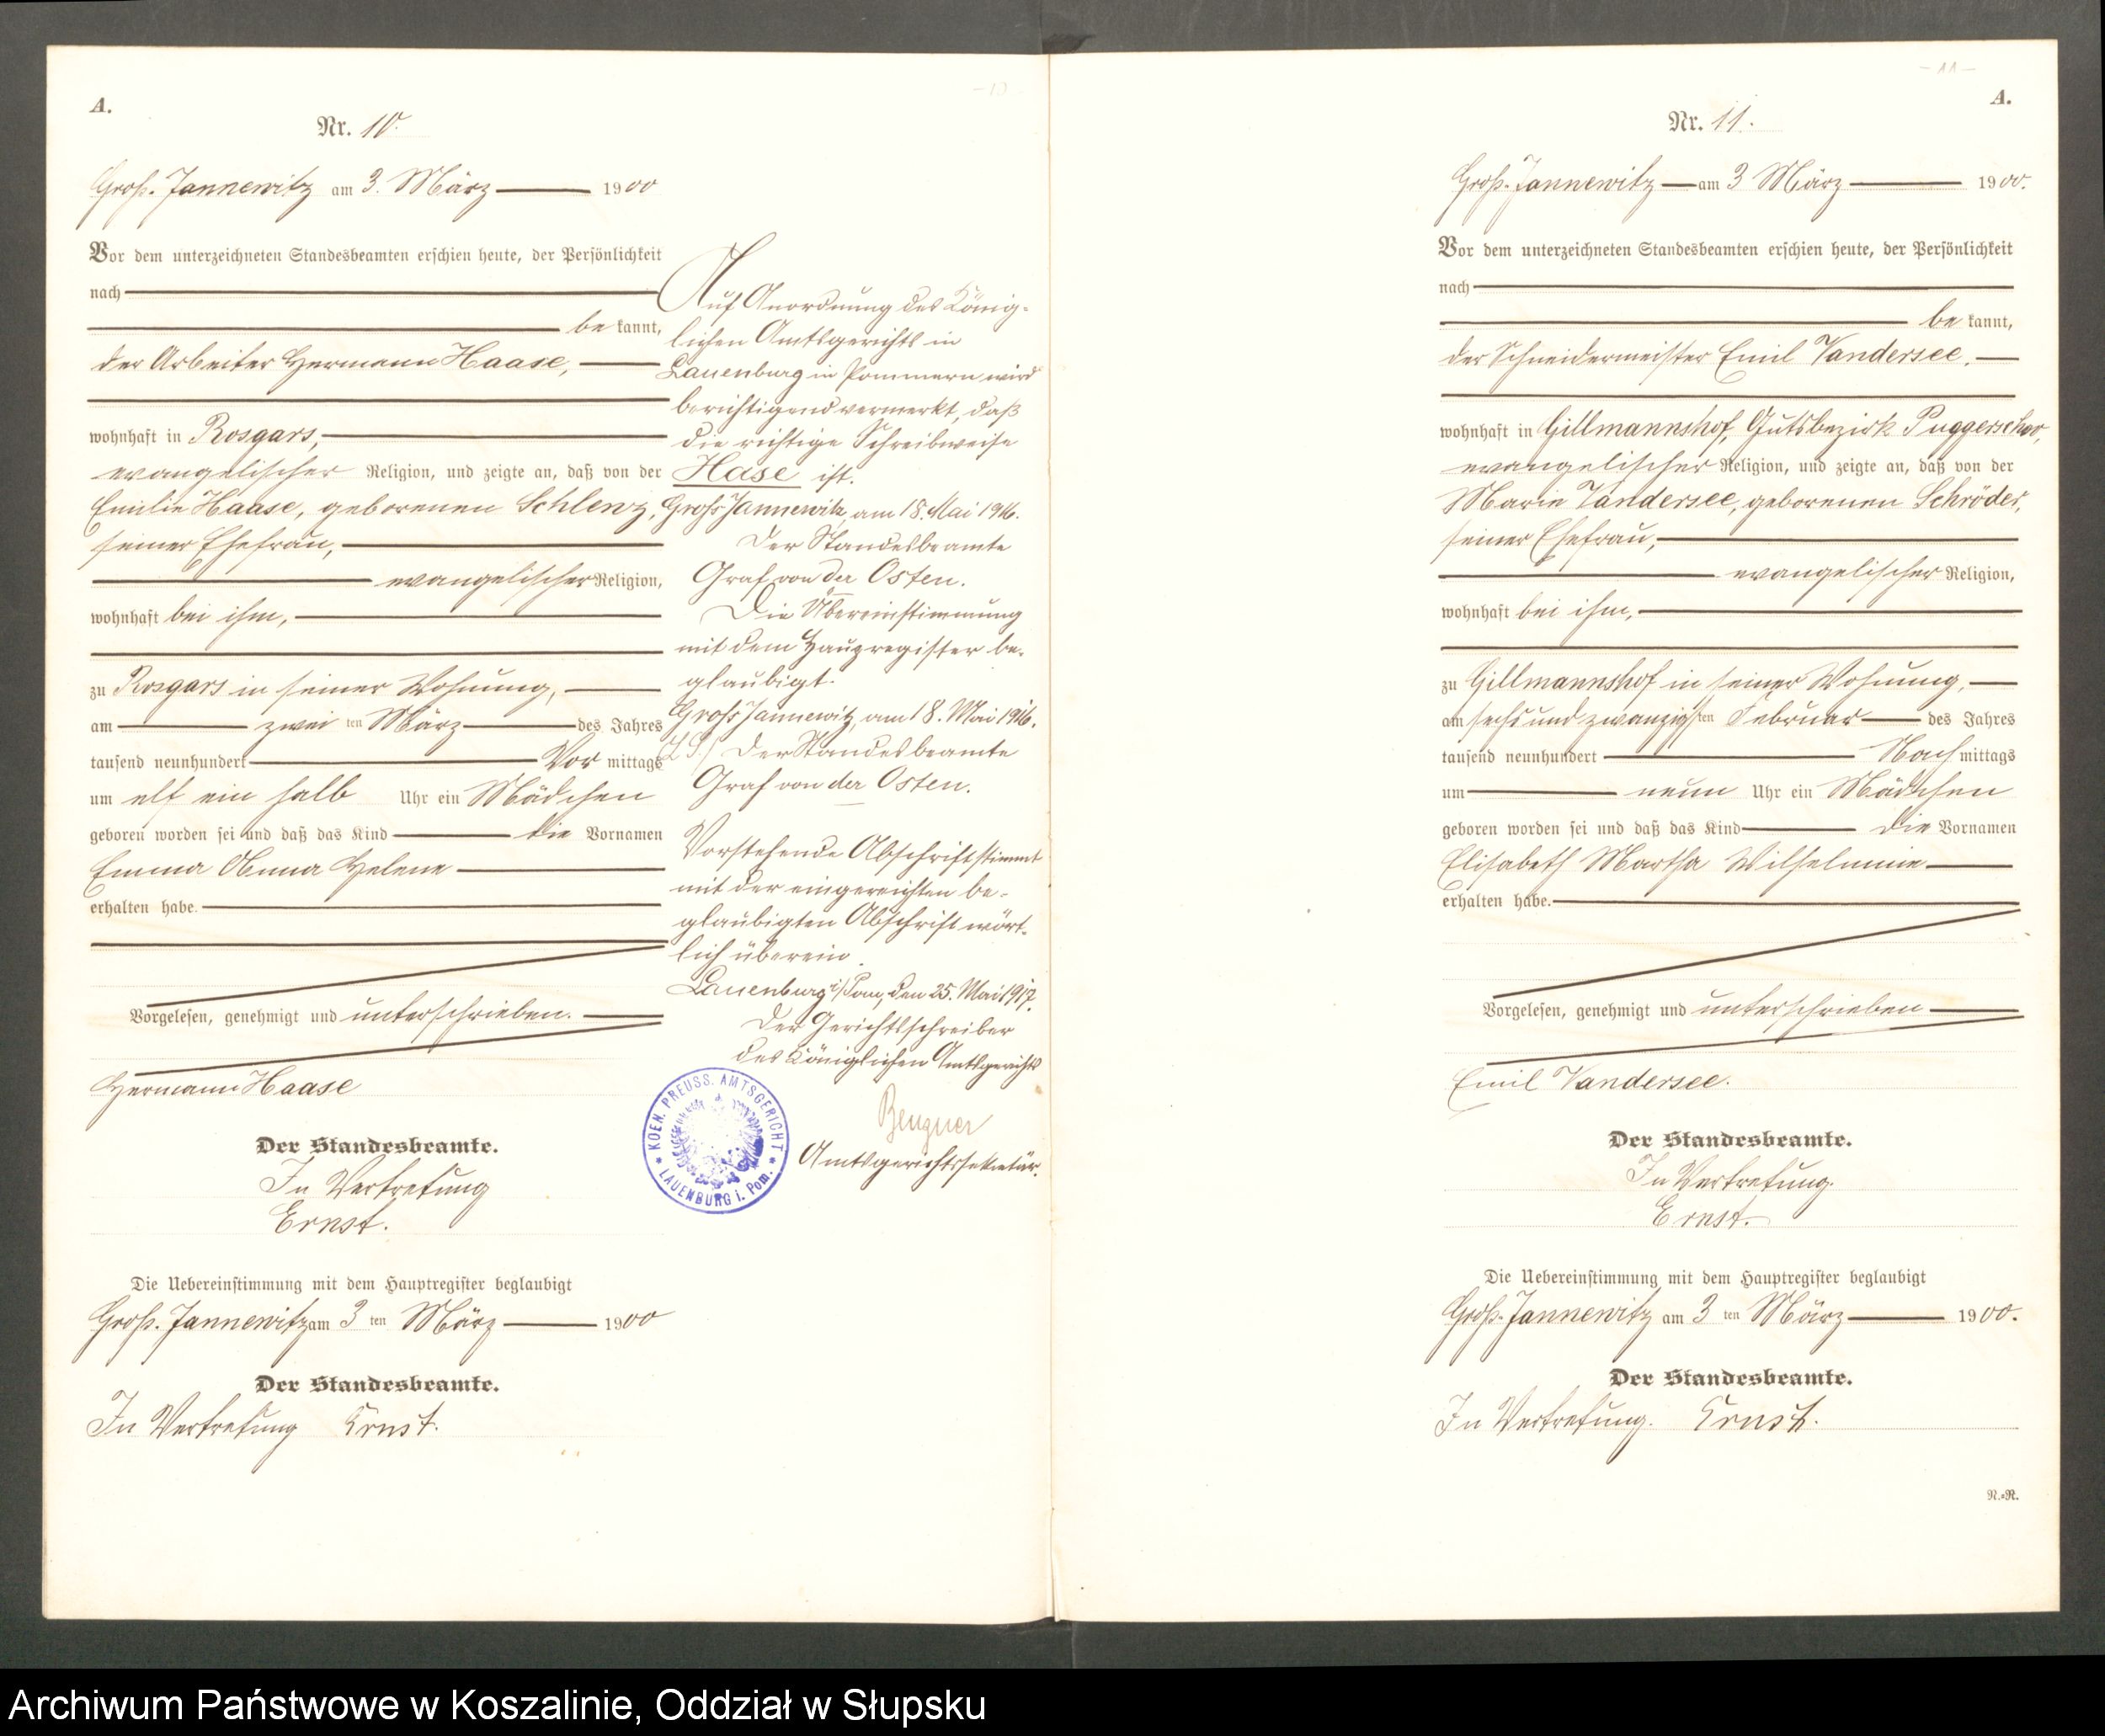 A.
Nr. 10.
Groß-Jannewitz am 3. März 1900
Vor dem unterzeichneten Standesbeamten erschien heute, der Persönlichkeit
nach
be kannt,
der Arbeiter Hermann Haase,
wohnhaft in Rosgars,
evangelischer Religion, und zeigte an, daß von der
Emilie Haase, geborenen Schlewz,
seiner Ehefrau,
evangelischer Religion,
wohnhaft bei ihm,
zu Rosgars in seiner Wohnung,
am zwei ten März des Jahres
tausend neunhundert Vor mittags
um elf ein halb Uhr ein Mädchen
geboren worden sei und daß das Kind die Vornamen
Emma Anna Helene
erhalten habe.
Vorgelesen, genehmigt und unterschrieben.
Hermann Haase
Der Standesbeamte.
In Vertretung
Ernst.
Die Uebereinstimmung mit dem Hauptregister beglaubigt
Groß-Jannewitz am 3 ten März 1900
Der Standesbeamte.
In Vertretung Ernst.
Auf Anordnung des König-
lichen Amtsgerichts in
Lauenburg in Pommern wird
berichtigend vermerkt, daß
die richtige Schreibweise
Hase ist.
Groß Jannewitz, am 18. Mai 1916.
Der Standesbeamte
Graf von der Osten.
Die Übereinstimmung
mit dem Hauptregister be-
glaubigt.
Groß Jannewitz, am 18. Mai 1916.
(L.S.) Der Standesbeamte
Graf von der Osten.
Vorstehende Abschrift stimmt
mit der eingereichten be-
glaubigten Abschrift wört-
lich überein.
Lauenburg i/Pom, den 25. Mai 1917.
Der Gerichtsschreiber
des Königlichen Amtsgerichts
Amtsgerichtssekretär.
KOEN. PREUSS. AMTSGERICHT * LAUENBURG i. Pom. *
- 11 -
A.
Nr. 11.
Groß-Jannewitz am 3 März 1900.
Vor dem unterzeichneten Standesbeamten erschien heute, der Persönlichkeit
nach
be kannt,
der Schneidermeister Emil Vandersee,
wohnhaft in Gillmannshof, Gutsbezirk Puggerschow,
evangelischer Religion, und zeigte an, daß von der
Marie Vandersee, geborenen Schröder,
seiner Ehefrau,
evangelischer Religion,
wohnhaft bei ihm,
zu Gillmannshof in seiner Wohnung,
am sechs und zwanzigsten Februar des Jahres
tausend neunhundert Nach mittags
um neun Uhr ein Mädchen
geboren worden sei und daß das Kind die Vornamen
Elisabeth Martha Wilhelmine
erhalten habe.
Vorgelesen, genehmigt und unterschrieben
Emil Vandersee.
Der Standesbeamte.
In Vertretung.
Ernst.
Die Uebereinstimmung mit dem Hauptregister beglaubigt
Groß-Jannewitz am 3 ten März 1900.
Der Standesbeamte.
In Vertretung. Ernst.
N.=R.
Archiwum Państwowe w Koszalinie, Oddział w Słupsku